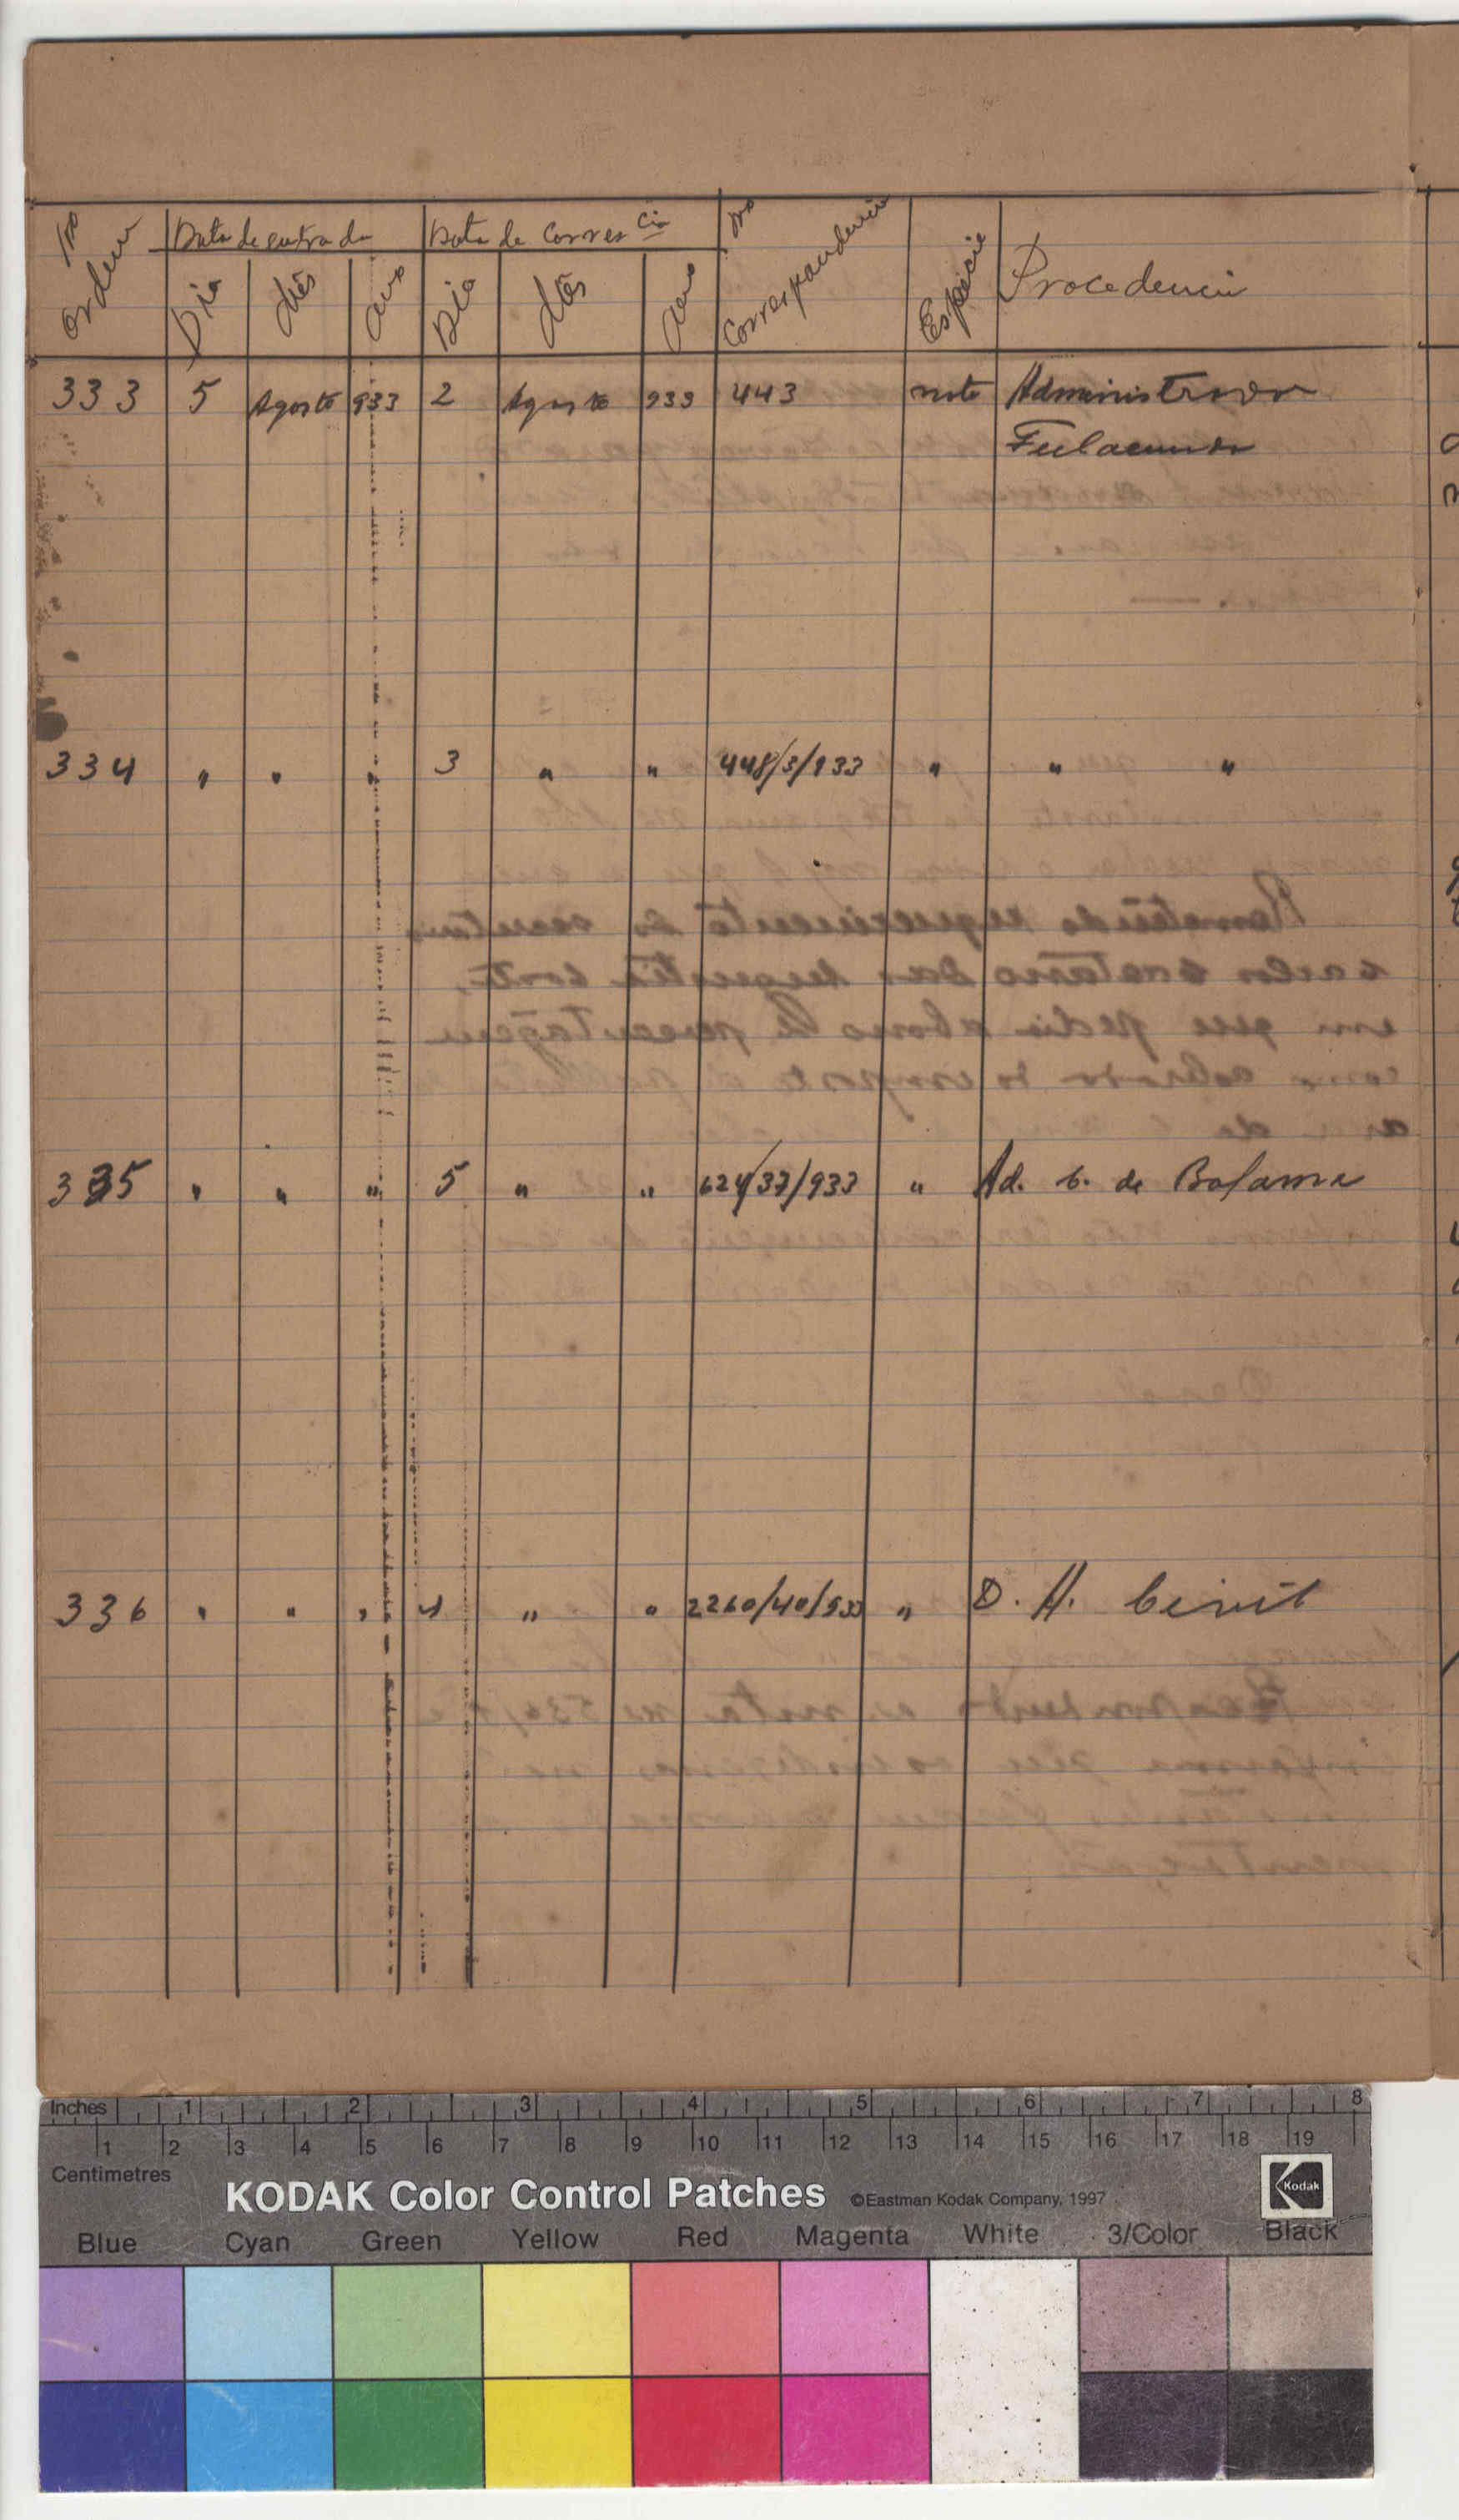 No Ordem | Data de entrada | Data de Correscia | No Correspondencia | Espécie | Procedencia
Dia | Mês | Ano | Dia | Mês | Ano
333 | 5 | Agosto | 933 | 2 | Agosto | 933 | 443 | nota | Administrador
Fulacunda
334 | " | " | " | 3 | " | " | 448/3/933 | " | " "
335 | " | " | " | 5 | " | " | 624/37/933 | " | Ad. C. de Bolama
336 | " | " | " | 4 | " | " | 2260/40/933 | " | D. A. Civil
Inches 1 2 3 4 5 6 7 8
1 2 3 4 5 6 7 8 9 10 11 12 13 14 15 16 17 18 19
Centimetres
KODAK Color Control Patches ©Eastman Kodak Company, 1997 Kodak
Blue Cyan Green Yellow Red Magenta White 3/Color Black